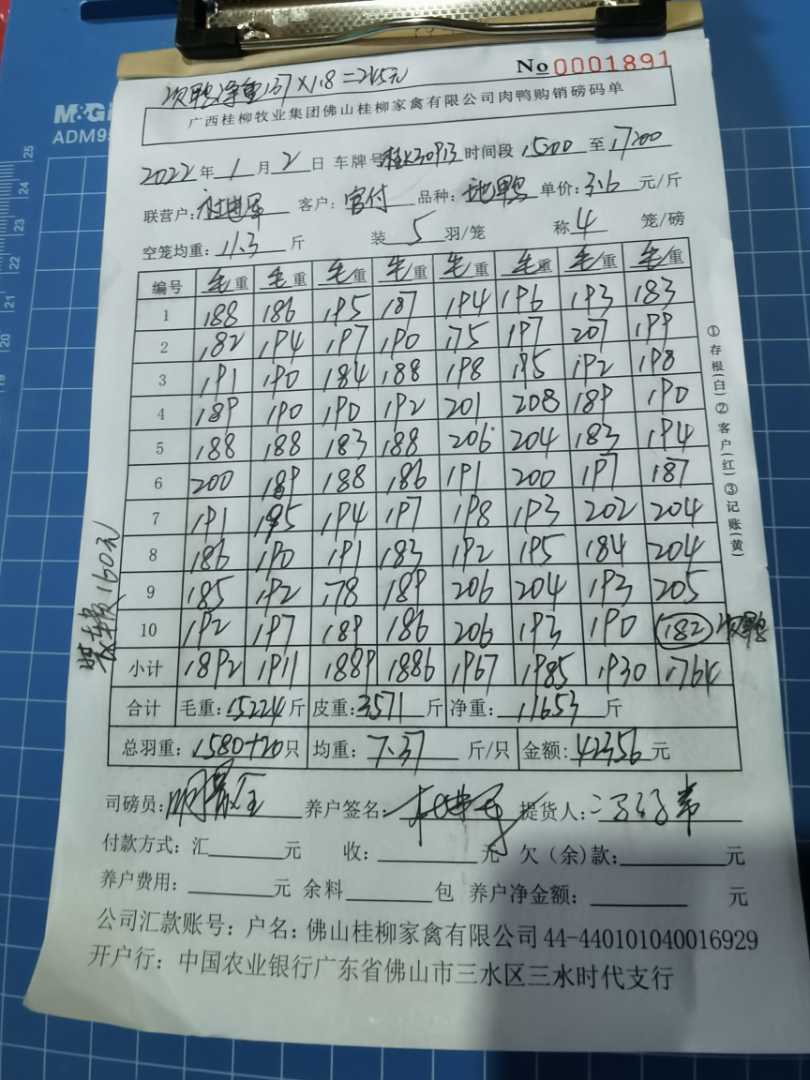 次鸭净重137×1.8=245元
No 0001891
广西桂柳牧业集团佛山桂柳家禽有限公司肉鸭购销磅码单
2022年1月2日 车牌号 时间段1500至1700
联营户: 客户: 官付 品种: 单价: 3.6 元/斤
空笼均重: 11.3 斤 装 5 羽/笼 称 4 笼/磅
编号 毛重 毛重 毛重 毛重 毛重 毛重 毛重 毛重
1 188 186 195 187 194 196 193 183
2 182 194 197 190 175 197 207 199
3 191 190 184 188 198 195 192 198
4 189 190 190 192 201 208 189 190
5 188 188 183 188 206 204 183 194
6 200 189 188 186 191 200 197 187
7 191 195 194 197 198 193 202 204
8 186 190 191 183 192 195 184 204
9 185 192 178 189 206 204 193 205
10 192 197 189 186 206 193 190 182 次鸭
小计 1892 1911 1889 1886 1967 1985 1930 1764
合计 毛重: 15224斤 皮重: 3571斤 净重: 11653斤
总羽重: 1580+20只 均重: 7.37斤/只 金额: 42356元
司磅员: 养户签名: 提货人:
付款方式: 汇 元 收: 元 欠(余)款: 元
养户费用: 元 余料 包 养户净金额: 元
公司汇款账号: 户名: 佛山桂柳家禽有限公司 44-440101040016929
开户行: 中国农业银行广东省佛山市三水区三水时代支行
①存根(白)②客户(红)③记账(黄)
装车费160元
M&G
ADM95
25
24
23
22
21
20
19